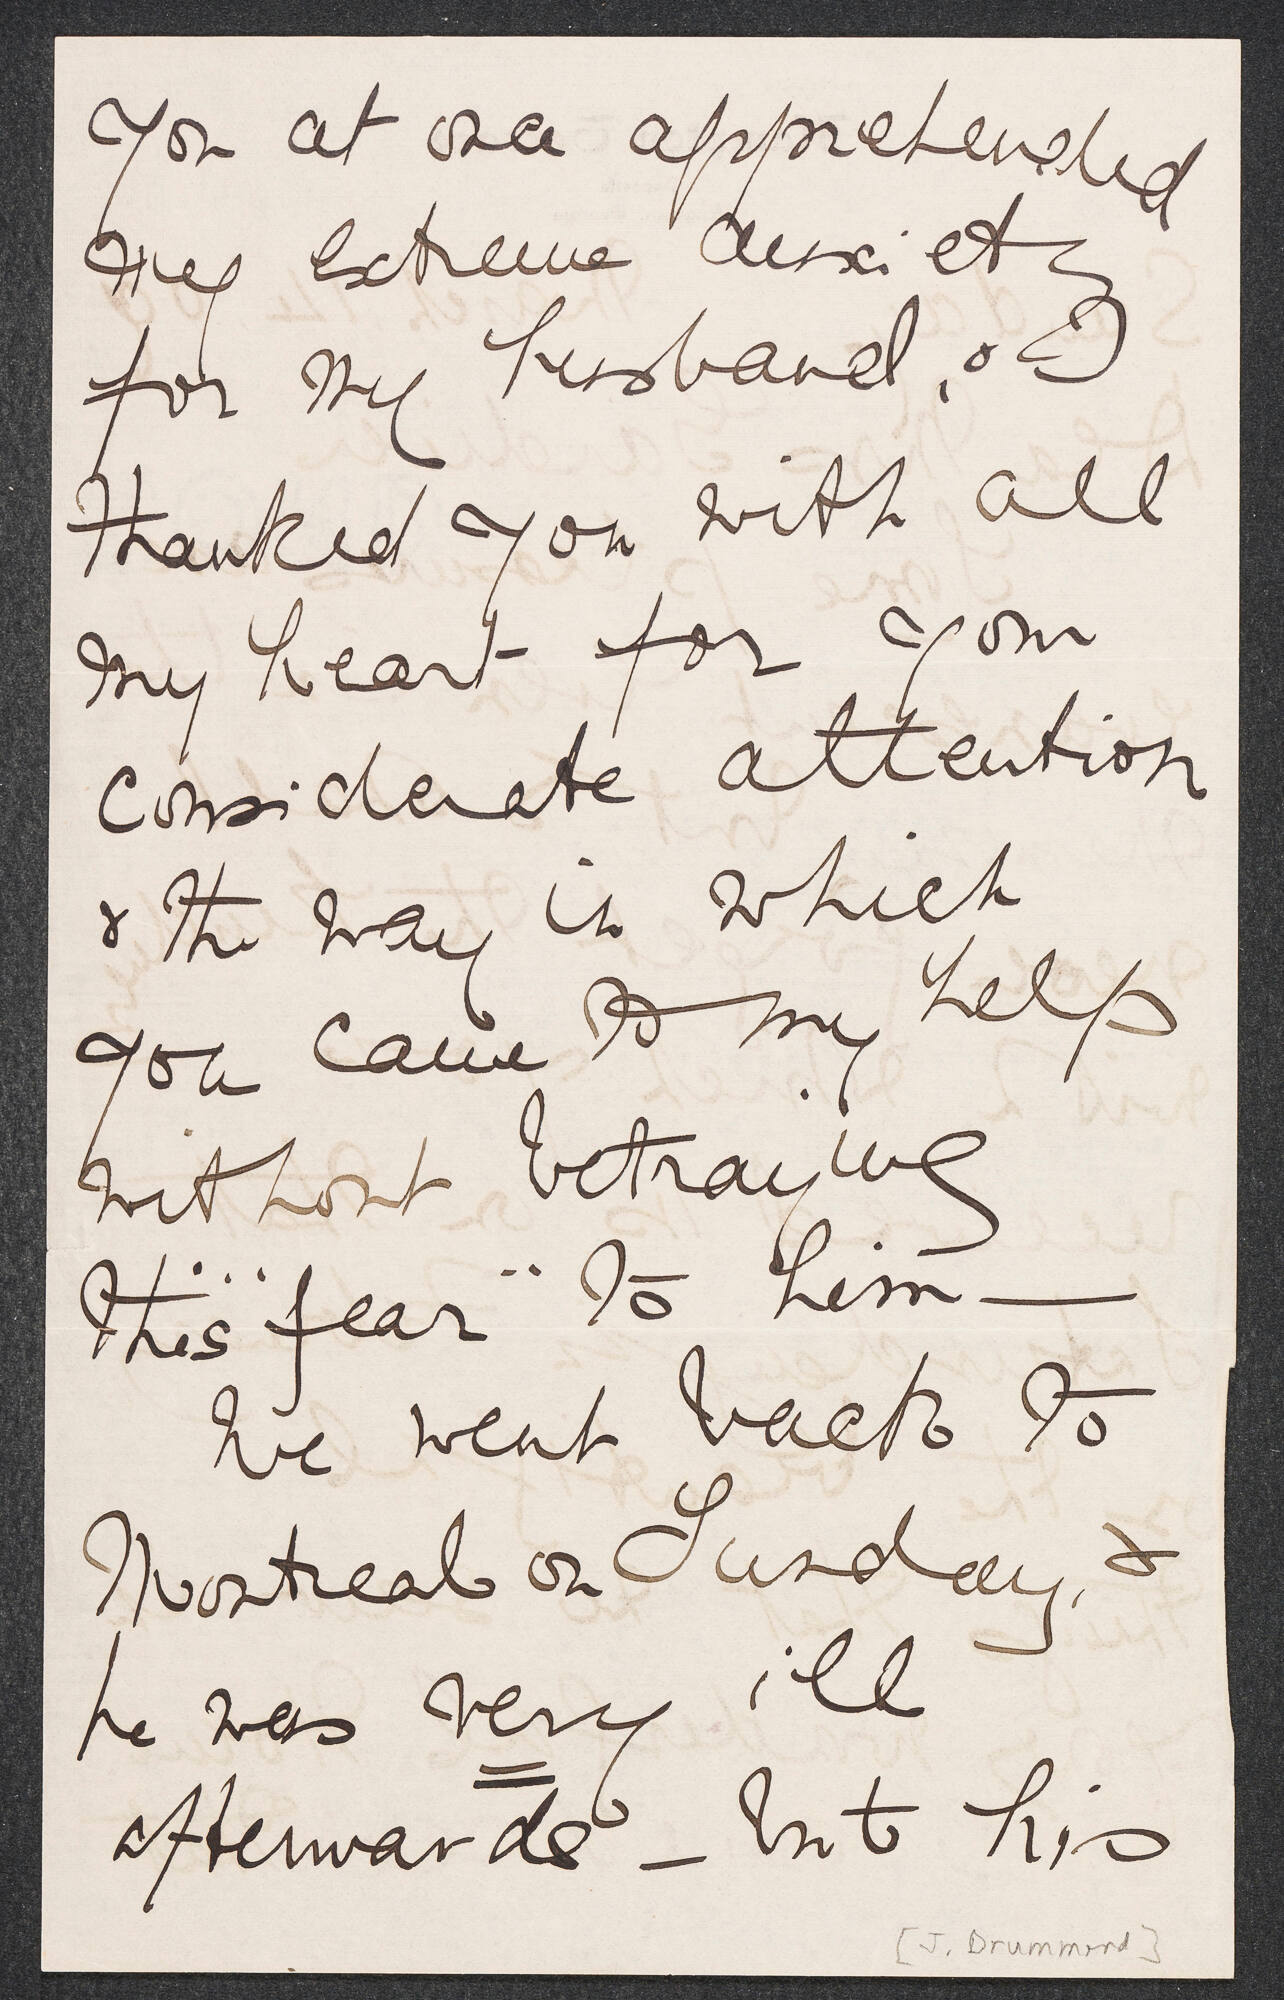 you at once apprehended
my extreme anxiety
for my husband, & I
thanked you with all
my heart for your
considerate attention
& the way in which
you came to my help
without betraying
this "fear" to him —
We went back to
Montreal on Sunday, &
he was very ill
afterwards — but his
[J. Drummond]